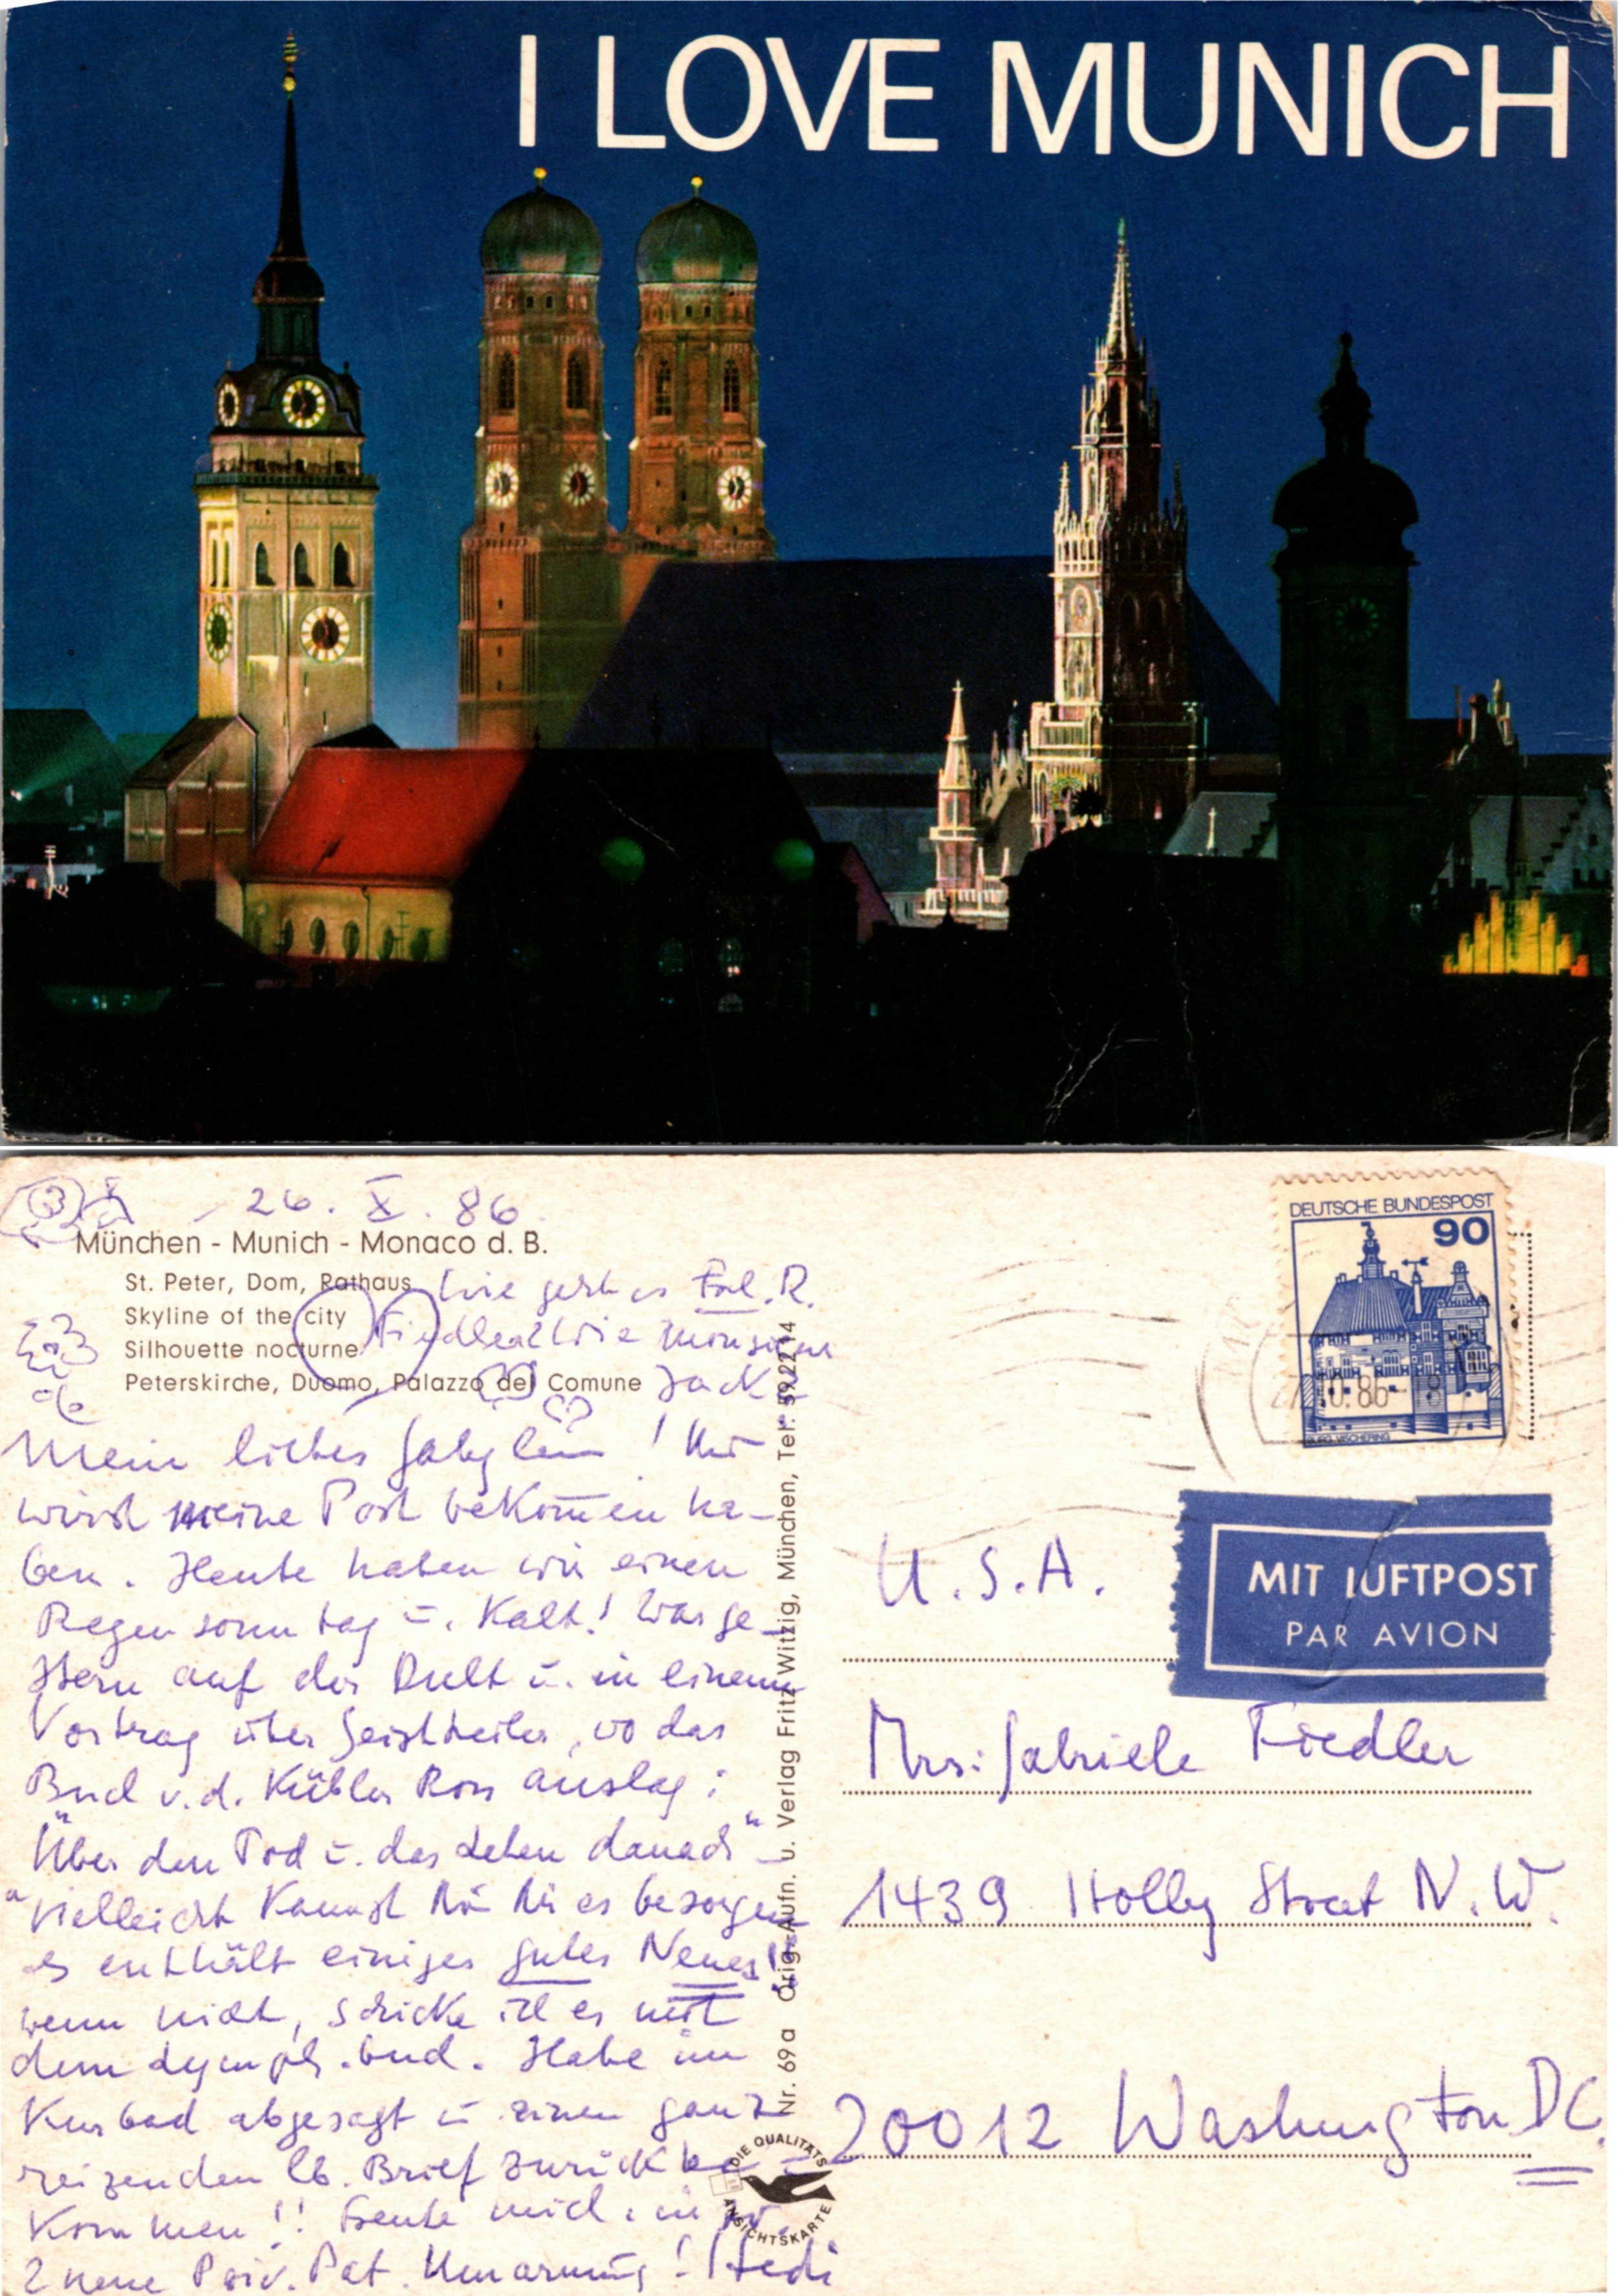 I LOVE MUNICH
26. X. 86.
München - Munich - Monaco d. B.
St. Peter, Dom, Rathaus
Skyline of the city
Silhouette nocturne
Peterskirche, Duomo, Palazzo del Comune
Wie geht es Frl. R.
Fiedler? Wie Monsieur
Jack?
Mein liebes Gabylein!
wirst meine Post bekommen ha-
ben. Heute haben wir einen
Regensonntag u. Kalt! War ge-
stern auf der Dult u. in einem
Vortrag über Geistheiler, wo das
Buch v. d. Kübler Ross auslag:
"Über den Tod u. das Leben danach" -
"Vielleicht kannst Du Dir es besorgen
es enthält einiges gutes Neues!"
wenn nicht, schicke ich es mit
dem Lymph.buch. Habe im
Kurbad abgesagt u. einen ganz
reizenden lb. Brief zurück be-
kommen!! Freute mich.
2 neue Priv. Pat. Umarmung! Hedi
Nr. 69a Orig.-Aufn. u. Verlag Fritz Witzig, München, Tel. 592214
DIE QUALITÄTS
ANSICHTSKARTE
DEUTSCHE BUNDESPOST
90
BURG VISCHERING
10.86
MIT LUFTPOST
PAR AVION
U.S.A.
Mrs: Gabriele Fiedler
1439 Holly Street N.W.
20012 Washington DC.